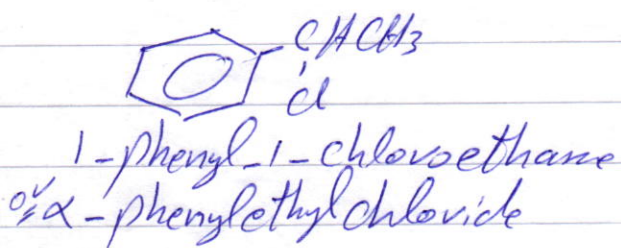 CHCH3
Cl
1-phenyl-1-chloroethane
or α-phenylethyl chloride